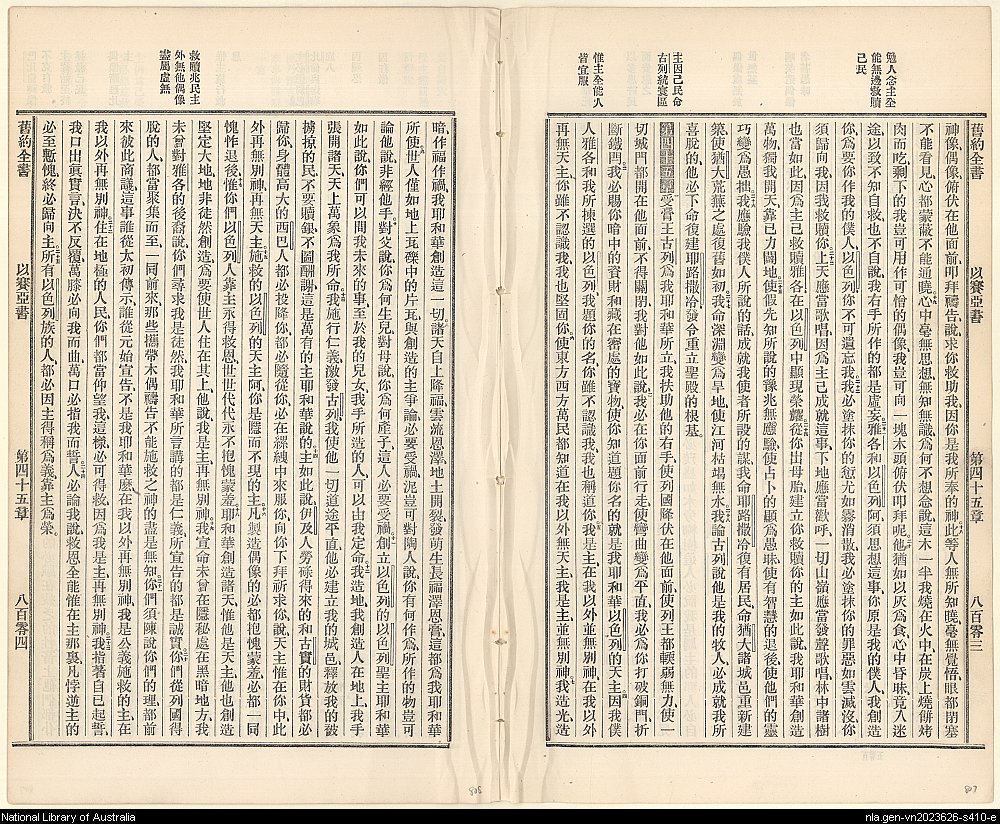 勉人念主全
能無邊救贖
己民
主因己民命
古列統寰區
惟主全能人
皆宜服
舊約全書 以賽亞書 第四十五章 八百零三
神像、偶像俯伏在他面前叩拜禱告說、求你救助我、因你是我所奉的神、此等人無所知曉、毫無覺悟、眼都閉塞
不能看見、心都蒙蔽不能通曉、心中毫無思想、無知無識、爲何不想念說、這木一半我燒在火中、在炭上燒餅烤
肉而吃、剩下的我豈可用作可憎的偶像、我豈可向一塊木頭俯伏叩拜呢、他猶如以灰爲食、心中昏昧、竟入迷
途、以致不知自救、也不自說、我右手所作的都是虛妄、雅各和以色列阿、須思想這事、你原是我的僕人、我創造
你、爲要你作我的僕人、以色列你不可遺忘我、我必塗抹你的愆尤如霧消散、我必塗抹你的罪惡如雲滅沒、你
須歸向我、因我救贖你、上天應當歌唱、因爲主已成就這事、下地應當歡呼、一切山嶺應當發聲歌唱、林中諸樹
也當如此、因爲主已救贖雅各、在以色列中顯現榮耀、從你出母胎、建立你救贖你的主如此說、我耶和華創造
萬物、獨我開天、靠己力闢地、使假先知所說的豫兆無應驗、使占卜的顯爲愚昧、使有智慧的退後、使他們的靈
巧變爲愚拙、我應驗我僕人所說的話、成就我使者所設的謀、我命耶路撒冷復有居民、命猶大諸城邑重新建
築、使猶大荒蕪之處復舊如初、我命深淵變爲旱地、使江河枯竭無水、我論古列說、他是我的牧人、必成就我所
喜悅的、他必下命復建耶路撒冷、發令重立聖殿的根基、
第四十五章 受膏王古列、是我耶和華所立、我扶助他的右手、使列國降伏在他面前、使列王都輭弱無力、使一
切城門都開在他面前不得關閉、我對他如此說、我必在你面前行走、使彎曲變爲平直、我必爲你打破銅門、折
斷鐵閂、我必賜你暗中的資財和藏在密處的寶物、使你知道題你名的、就是我耶和華以色列的天主、因我僕
人雅各和我所揀選的以色列、我題你的名、你雖不認識我、我也稱道你、我是主、在我以外並無別神、在我以外
再無天主、你雖不認識我、我也堅固你、使東方西方萬民都知道在我以外無天主、我是主、並無別神、我造光造
救贖兆民主
外無他偶像
盡屬虛無
暗、作福作禍、我耶和華創造這一切、諸天自上降福、雲流恩澤、地土開裂發萌生長、福澤恩膏、這都爲我耶和華
所使、世人僅如地上瓦礫中的片瓦、與創造的主爭論、必要受禍、泥豈可對陶人說、你有何作爲、所作的物豈可
論他說、非經他手、對父說、你爲何生兒、對母說、你爲何產子、這人必要受禍、創立以色列的以色列聖主耶和華
如此說、你們可以問我未來的事、至於我的兒女我手所造的人、可以由我定命、我造地、我創造人在地上、我手
張開諸天、天上萬象爲我所命、我施行仁義激發古列、我使他一切道途平直、他必建立我的城邑、釋放我的被
擄掠的民、不要贖銀、不圖酬謝、這是萬有的主耶和華說的、主如此說、伊及人勞碌得來的、和古實的財貨都必
歸你、身體高大的西巴人都必投降你、都必隨從你、必在縲絏中來服你、向你下拜祈求你說、天主惟在你中、此
外再無別神、再無天主、施救的以色列的天主阿、你是隱而不現的主、凡製造偶像的必都抱愧蒙羞、必都一同
愧怍退後、惟你們以色列人、靠主永得救恩、世世代代永不抱愧蒙羞、耶和華創造諸天、惟他是天主、他也創造
堅定大地、地非徒然創造、爲要使世人住在其上、他說、我是主、再無別神、我宣命未曾在隱秘處在黑暗地方、我
未曾對雅各的後裔說、你們尋求我是徒然、我耶和華所言講的都是仁義、所宣告的都是誠實、你們從列國得
脫的人、都當聚集而至、一同前來、那些攜帶木偶、禱告不能施救之神的、盡是無知、你們須陳說你們的理、都前
來彼此商議、這事誰從太初傳示、誰從元始宣告、不是我耶和華麽、在我以外再無別神、我是公義施救的主、在
我以外再無別神、住在地極的人民、你們都當仰望我、這樣必可得救、因爲我是主、再無別神、我指著自己起誓、
我口出眞實言、決不反覆、萬膝必向我而曲、萬口必指我而誓、人必論我說、救恩全能惟在主那裏、凡悖逆主的
必至慙愧、終必歸向主、所有以色列族的人、都必因主得稱爲義、靠主爲榮、
舊約全書 以賽亞書 第四十五章 八百零四
805
807
National Library of Australia
nla.gen-vn2023626-s410-e